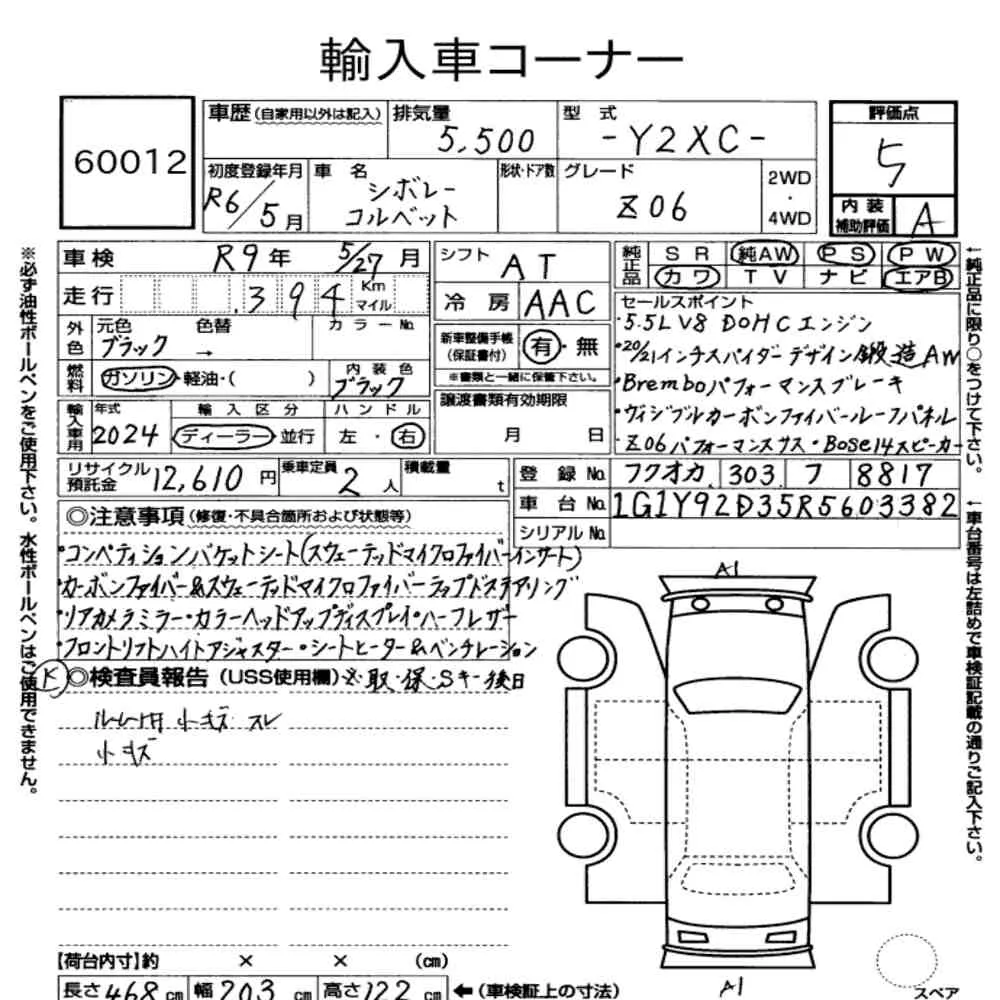 輸入車コーナー
60012
車歴(自家用以外は記入) 排気量 5,500 型式 -Y2XC- 評価点 5
初度登録年月 R6/5月 車名 シボレー コルベット 形状・ドア数 グレード Z06 2WD・4WD 内装補助評価 A
車検 R9年 5/27月 シフト AT 純正品 SR 純AW PS PW
カワ TV ナビ エアB
走行 394 Km マイル 冷房 AAC
外色 元色 ブラック 色替 → カラーNo.
新車整備手帳(保証書付) 有・無
※書類と一緒に保管下さい。
燃料 ガソリン・軽油・( ) 内装色 ブラック
輸入車用 年式 2024 輸入区分 ディーラー・並行 ハンドル 左・右
譲渡書類有効期限 月 日
セールスポイント
・5.5L V8 DOHCエンジン
・20/21インチスパイダーデザイン鍛造AW
・Bremboパフォーマンスブレーキ
・ヴィジブルカーボンファイバールーフパネル
・Z06パフォーマンスサス・BOSE14スピーカー
リサイクル預託金 12,610円 乗車定員 2人 積載量 t
登録No. フクオカ 303 フ 8817
車台No. 1G1Y92D35R5603382
シリアルNo.
◎注意事項(修復・不具合箇所および状態等)
・コンペティションバケットシート(スウェーデッドマイクロファイバーインサート)
・カーボンファイバー&スウェーデッドマイクロファイバーラップドステアリング
・リアカメラミラー・カラーヘッドアップディスプレイ・ハーフレザー
・フロントリフトハイトアジャスター・シートヒーター&ベンチレーション
K ◎検査員報告(USS使用欄)※取・保・Sキー後日
ルーム内 小キズ スレ
小キズ
A1
A1
スペア
【荷台内寸】約 × × (cm)
長さ 468 cm 幅 203 cm 高さ 122 cm ←(車検証上の寸法)
※必ず油性ボールペンをご使用下さい。水性ボールペンはご使用できません。
←純正品に限り○をつけて下さい。
←車台番号は左詰めで車検証記載の通りご記入下さい。